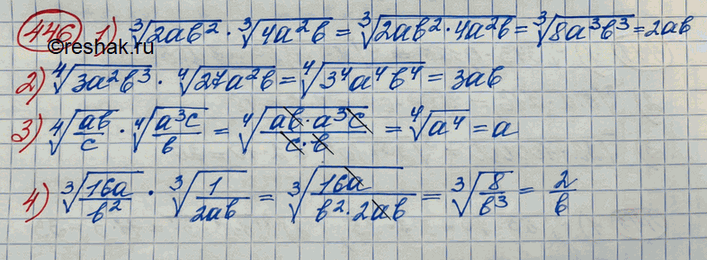 446 1) ∛(2ab²) · ∛(4a²b) = ∛(2ab² · 4a²b) = ∛(8a³b³) = 2ab
©reshak.ru
2) ∜(3a²b³) · ∜(27a²b) = ∜(3⁴a⁴b⁴) = 3ab
3) ∜(ab/c) · ∜(a³c/b) = ∜(ab·a³c/c·b) = ∜(a⁴) = a
4) ∛(16a/b²) · ∛(1/2ab) = ∛(16a/b²·2ab) = ∛(8/b³) = 2/b